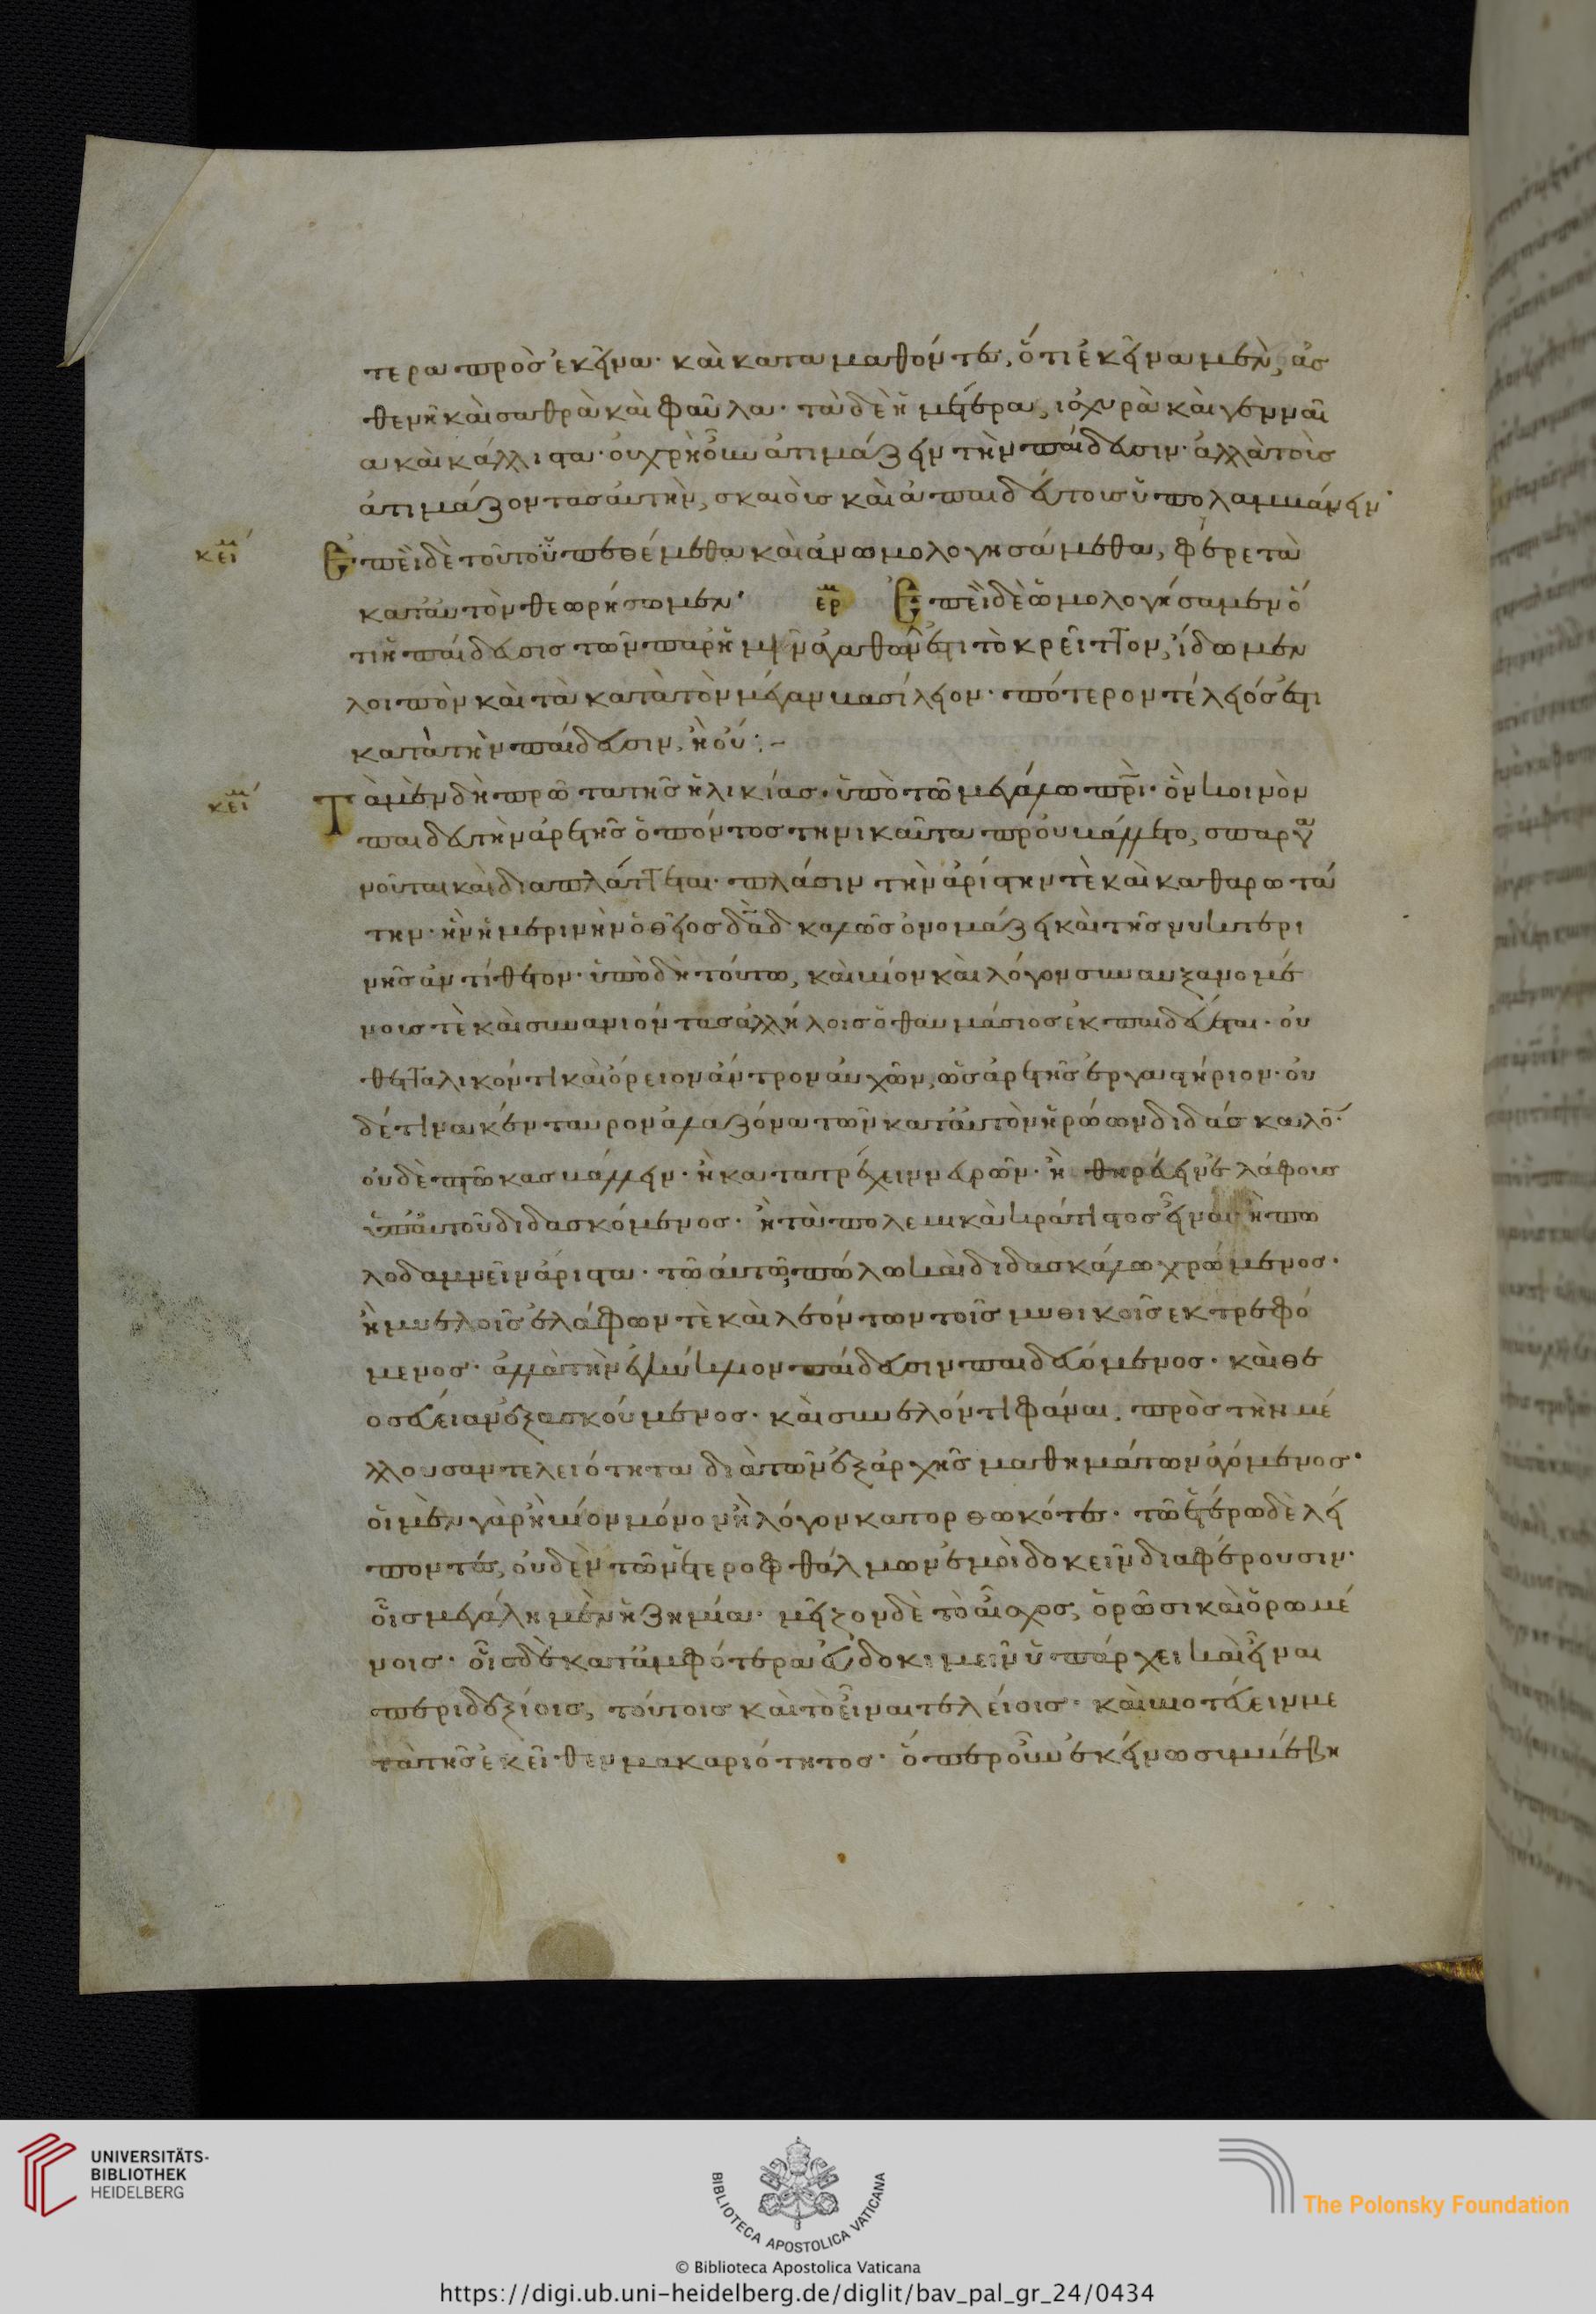 κει´
κει´
τερα πρὸς ἐκεῖνα· καὶ καταμαθόντες, ὅτι ἐκεῖνα μὲν, ἀσ
θενῆ καὶ σαθρὰ καὶ φαῦλα· τὰ δὲ ἡμέτερα, ἰσχυρὰ καὶ γενναῖ
α καὶ κάλλιστα· οὐ χρὴ οὖν ἀτιμάζειν τὴν παίδευσιν· ἀλλὰ τοὺς
ἀτιμάζοντας αὐτὴν, σκαιοὺς καὶ ἀπαιδεύτους ὑπολαμβάνειν·
Ἐπεὶ δὲ τοῦτο ὑπεθέμεθα καὶ ἀνωμολογησάμεθα, φέρε τὰ
κατ' αὐτὸν θεωρήσωμεν· ερ Ἐπεὶ δὲ ὡμολογήσαμεν ὅ
τι ἡ παίδευσις τῶν παρ' ἡμῖν ἀγαθῶν ἐστι τὸ κρεῖττον, ἴδωμεν
λοιπὸν καὶ τὰ κατὰ τὸν μέγαν βασίλειον· πότερον τέλειός ἐστι
κατὰ τὴν παίδευσιν, ἢ οὔ:–
Τὰ μὲν δὴ πρῶτα τῆς ἡλικίας· ὑπὸ τῶ μεγάλω πρι· ὃν κοινὸν
παιδευτὴν ἀρετῆς ὁ πόντος τηνικαῦτα προὐβάλλετο, σπαργα
νοῦται καὶ διαπλάττεται· πλάσιν τὴν ἀρίστην τὲ καὶ καθαρωτά
την· ἣν ἡμερινὴν ὁ θεῖος δᾱδ καλῶς ὀνομάζει καὶ τῆς νυκτερι
νῆς ἀντίθετον· ὑπὸ δὴ τούτω, καὶ βίον καὶ λόγον συναυξανομέ
νους τὲ καὶ συνανιόντας ἀλλήλοις ὁ θαυμάσιος ἐκπαιδεύεται· οὐ
θετταλικόν τι καὶ ὄρειον ἄντρον αὐχῶν, ὡς ἀρετῆς ἐργαστήριον· οὐ
δέ τινα κένταυρον ἀλαζόνα τῶν κατ' αὐτὸν ἡρώων διδάσκαλο·
οὐδὲ πτῶκας βάλλειν· ἢ κατατρέχειν νεβρῶν· ἢ θηρεύειν ἐλάφους
ὑπ' αὐτοῦ διδασκόμενος· ἢ τὰ πολεμικὰ κράτιστος εἶναι· ἢ πω
λοδαμνεῖν ἄριστα· τῶ αὐτῶ, πώλω καὶ διδασκάλω χρώμενος·
ἢ μυελοῖς ἐλάφων τὲ καὶ λεόντων τοῖς μυθικοῖς ἐκτρεφό
μενος· ἀλλὰ τὴν ἐγκύκλιον παίδευσιν παιδευόμενος· καὶ θε
οσέβειαν ἐξασκούμενος· καὶ συνελόντι φάναι, πρὸς τὴν μέ
λλουσαν τελειότητα διὰ τῶν ἐξ ἀρχῆς μαθημάτων ἀγόμενος·
οἱ μὲν γὰρ ἢ βίον μόνον ἢ λόγον κατορθωκότες· τῶ ἑτέρω δὲ λεί
ποντες, οὐδὲν τῶν ἑτεροφθάλμων ἐμοὶ δοκεῖν διαφέρουσιν·
οἷς μεγάλη μὲν ἡ ζημία· μεῖζον δὲ τὸ αἶσχος, ὁρῶσι καὶ ὁρωμέ
νοις· οἷς δὲ κατ' ἀμφότερα εὐδοκιμεῖν ὑπάρχει καὶ εἶναι
περιδεξίοις, τούτοις καὶ τὸ εἶναι τελείοις· καὶ βιοτεύειν με
τὰ τῆς ἐκεῖθεν μακαριότητος· ὅπερ οὖν ἐκείνω συμβέβη
UNIVERSITÄTS-
BIBLIOTHEK
HEIDELBERG
BIBLIOTECA APOSTOLICA VATICANA
© Biblioteca Apostolica Vaticana
The Polonsky Foundation
https://digi.ub.uni-heidelberg.de/diglit/bav_pal_gr_24/0434